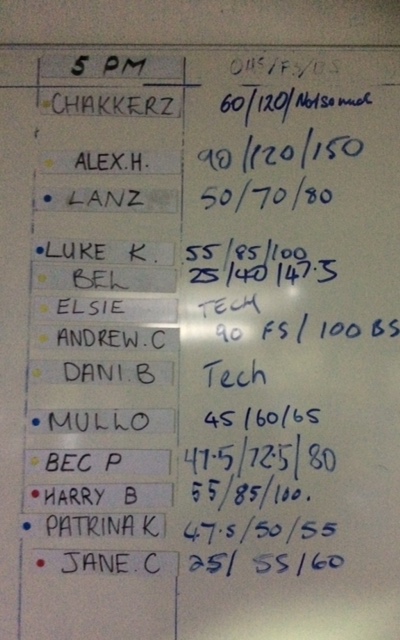 5 PM OHS/FS/BS
CHAKKERZ 60/120/Not so much
ALEX.H. 90/120/150
LANZ 50/70/80
LUKE K. 55/85/100
BEL 25/40/47.5
ELSIE TECH
ANDREW.C 90 FS/100 BS
DANI.B Tech
MULLO 45/60/65
BEC P 47.5/72.5/80
HARRY B 55/85/100.
PATRINA K 47.5/50/55
JANE.C 25/55/60